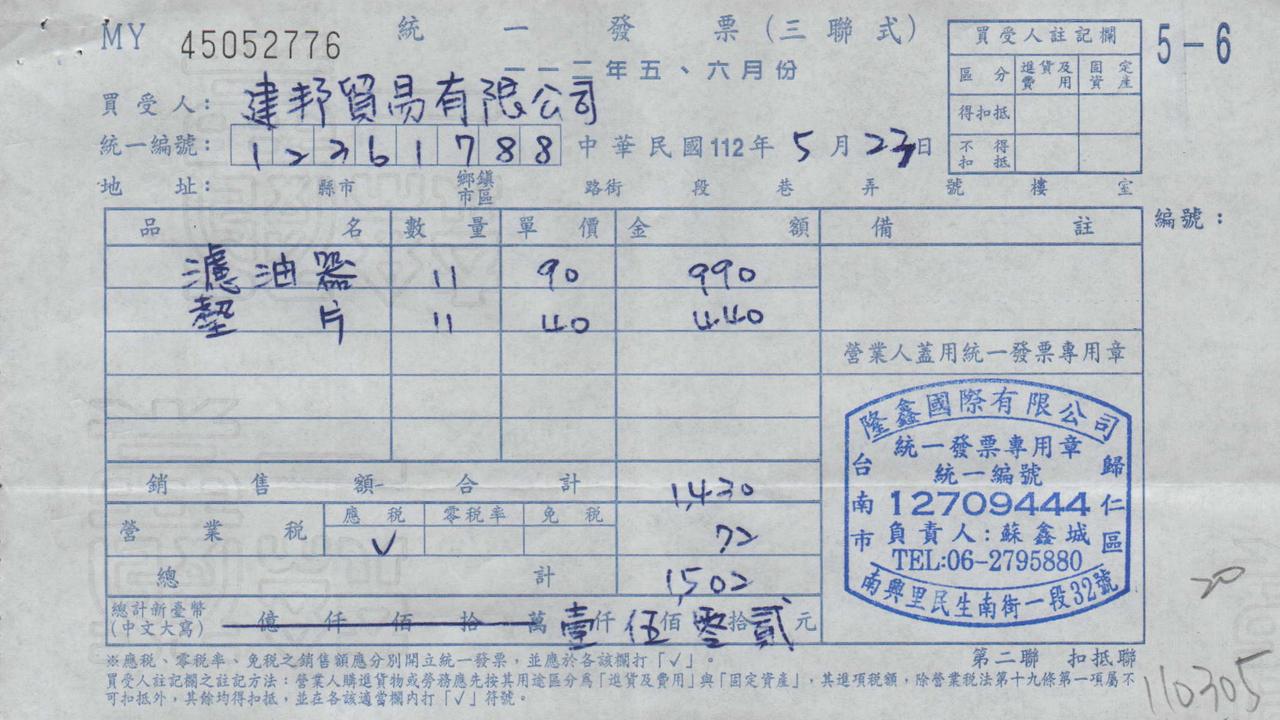 MY 45052776 統一發票(三聯式) 5-6
一一二年五、六月份
買受人註記欄
區分 進貨及費用 固定資產
得扣抵
不得扣抵
買受人: 建邦貿易有限公司
統一編號: 12361788 中華民國112年5月23日
地址: 縣市 鄉鎮市區 路街 段 巷 弄 號 樓 室
品名 數量 單價 金額 備註 編號:
濾油器 11 90 990
墊片 11 40 440
營業人蓋用統一發票專用章
銷售額合計 1,430
營業稅 應稅 零稅率 免稅
✓ 72
總計 1,502
總計新臺幣(中文大寫) 億仟佰拾萬壹仟伍佰零拾貳元
隆鑫國際有限公司
統一發票專用章
統一編號
12709444
負責人:蘇鑫城
TEL:06-2795880
台南市 歸仁區
南興里民生南街一段32號
20
※應稅、零稅率、免稅之銷售額應分別開立統一發票,並應於各該欄打「✓」。
第二聯 扣抵聯
買受人註記欄之註記方法:營業人購進貨物或勞務應先按其用途區分為「進貨及費用」與「固定資產」,其進項稅額,除營業稅法第十九條第一項屬不
可扣抵外,其餘均得扣抵,並在各該適當欄內打「✓」符號。
110305